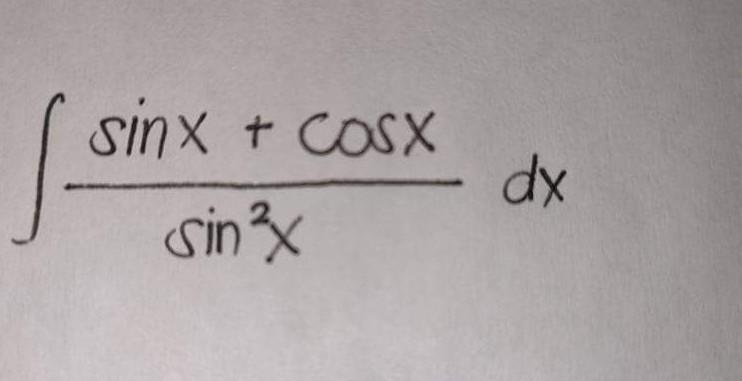 ∫ (sinx + cosx)/(sin²x) dx